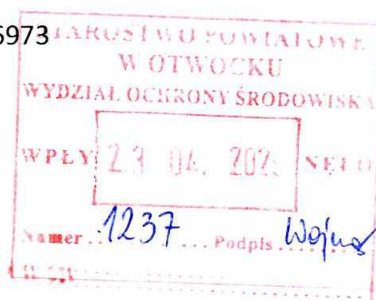 6973
STAROSTWO POWIATOWE
W OTWOCKU
WYDZIAŁ OCHRONY ŚRODOWISKA
WPŁY 23 04. 202 NĘŁO
Numer .. 1237 ... Podpis